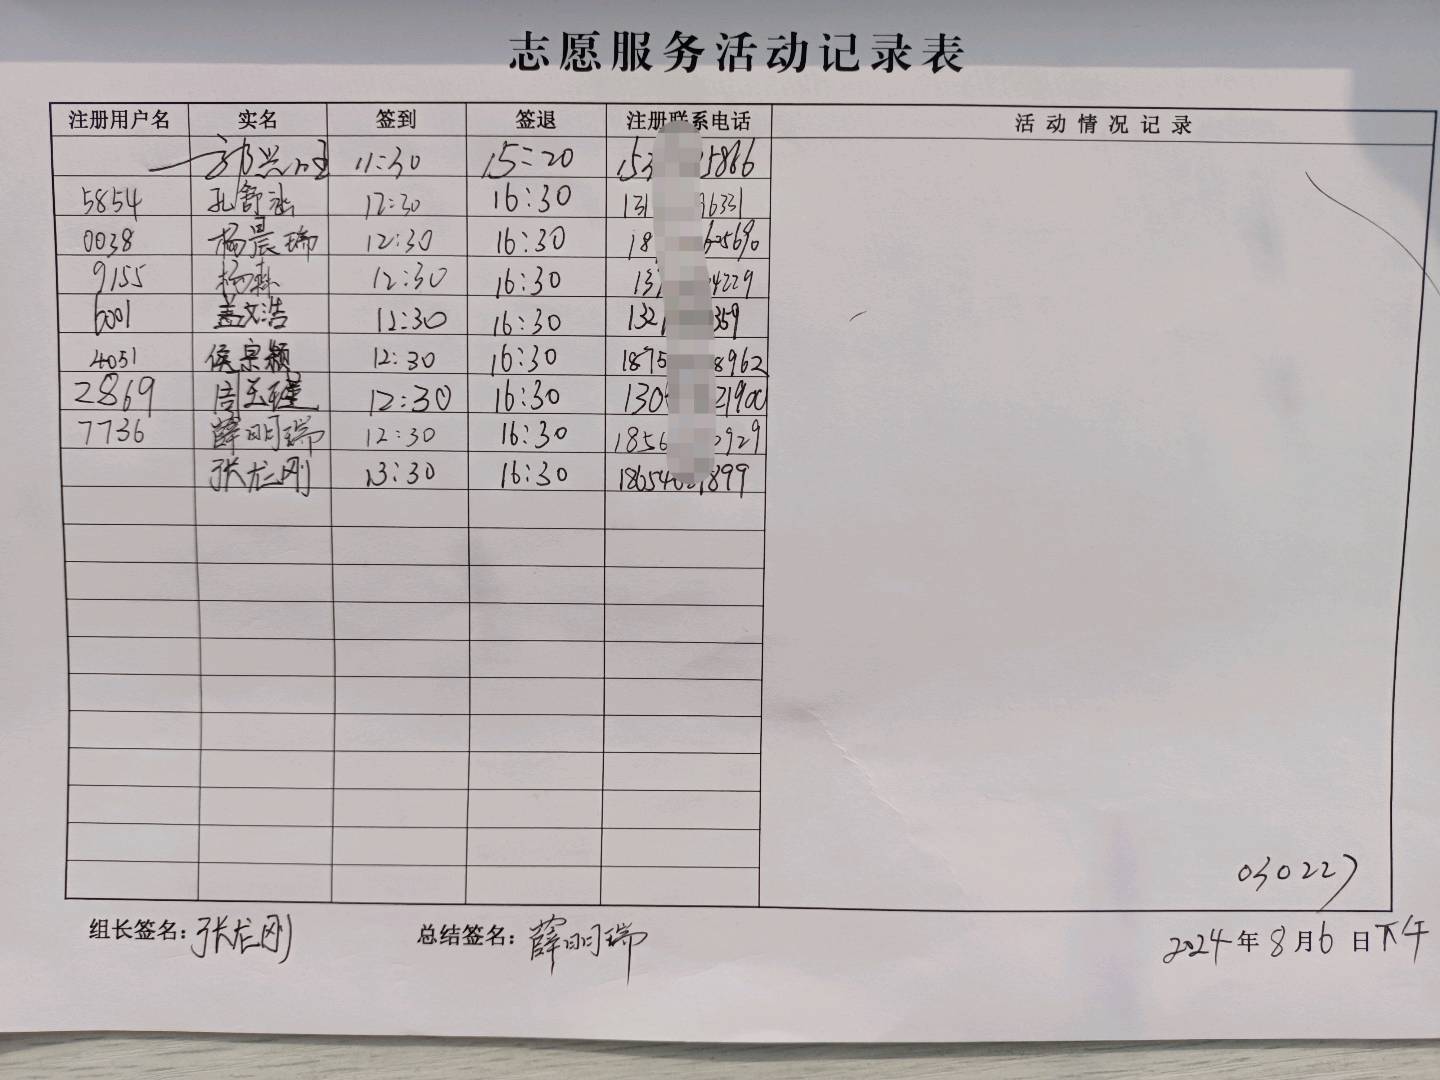 志愿服务活动记录表
注册用户名 实名 签到 签退 注册联系电话 活动情况记录
11:30 15:20 153 5866
5854 孔舒 12:30 16:30 131 96331
0038 杨晨瑞 12:30 16:30 18 625690
9155 杨森 12:30 16:30 137 4229
6001 盖文浩 12:30 16:30 132 359
4051 侯宗颖 12:30 16:30 1875 8962
2869 12:30 16:30 130 21900
7736 薛明瑞 12:30 16:30 1856 2929
张龙刚 13:30 16:30 18654 1899
030227
组长签名:张龙刚 总结签名:薛明瑞 2024年8月6日下午